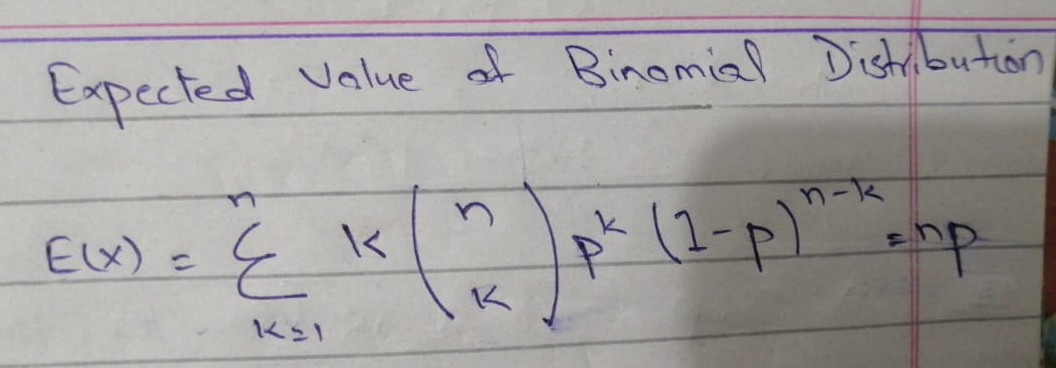 Expected Value of Binomial Distribution
E(X) = n∑k=1 k (n k) p^k (1-p)^n-k = np